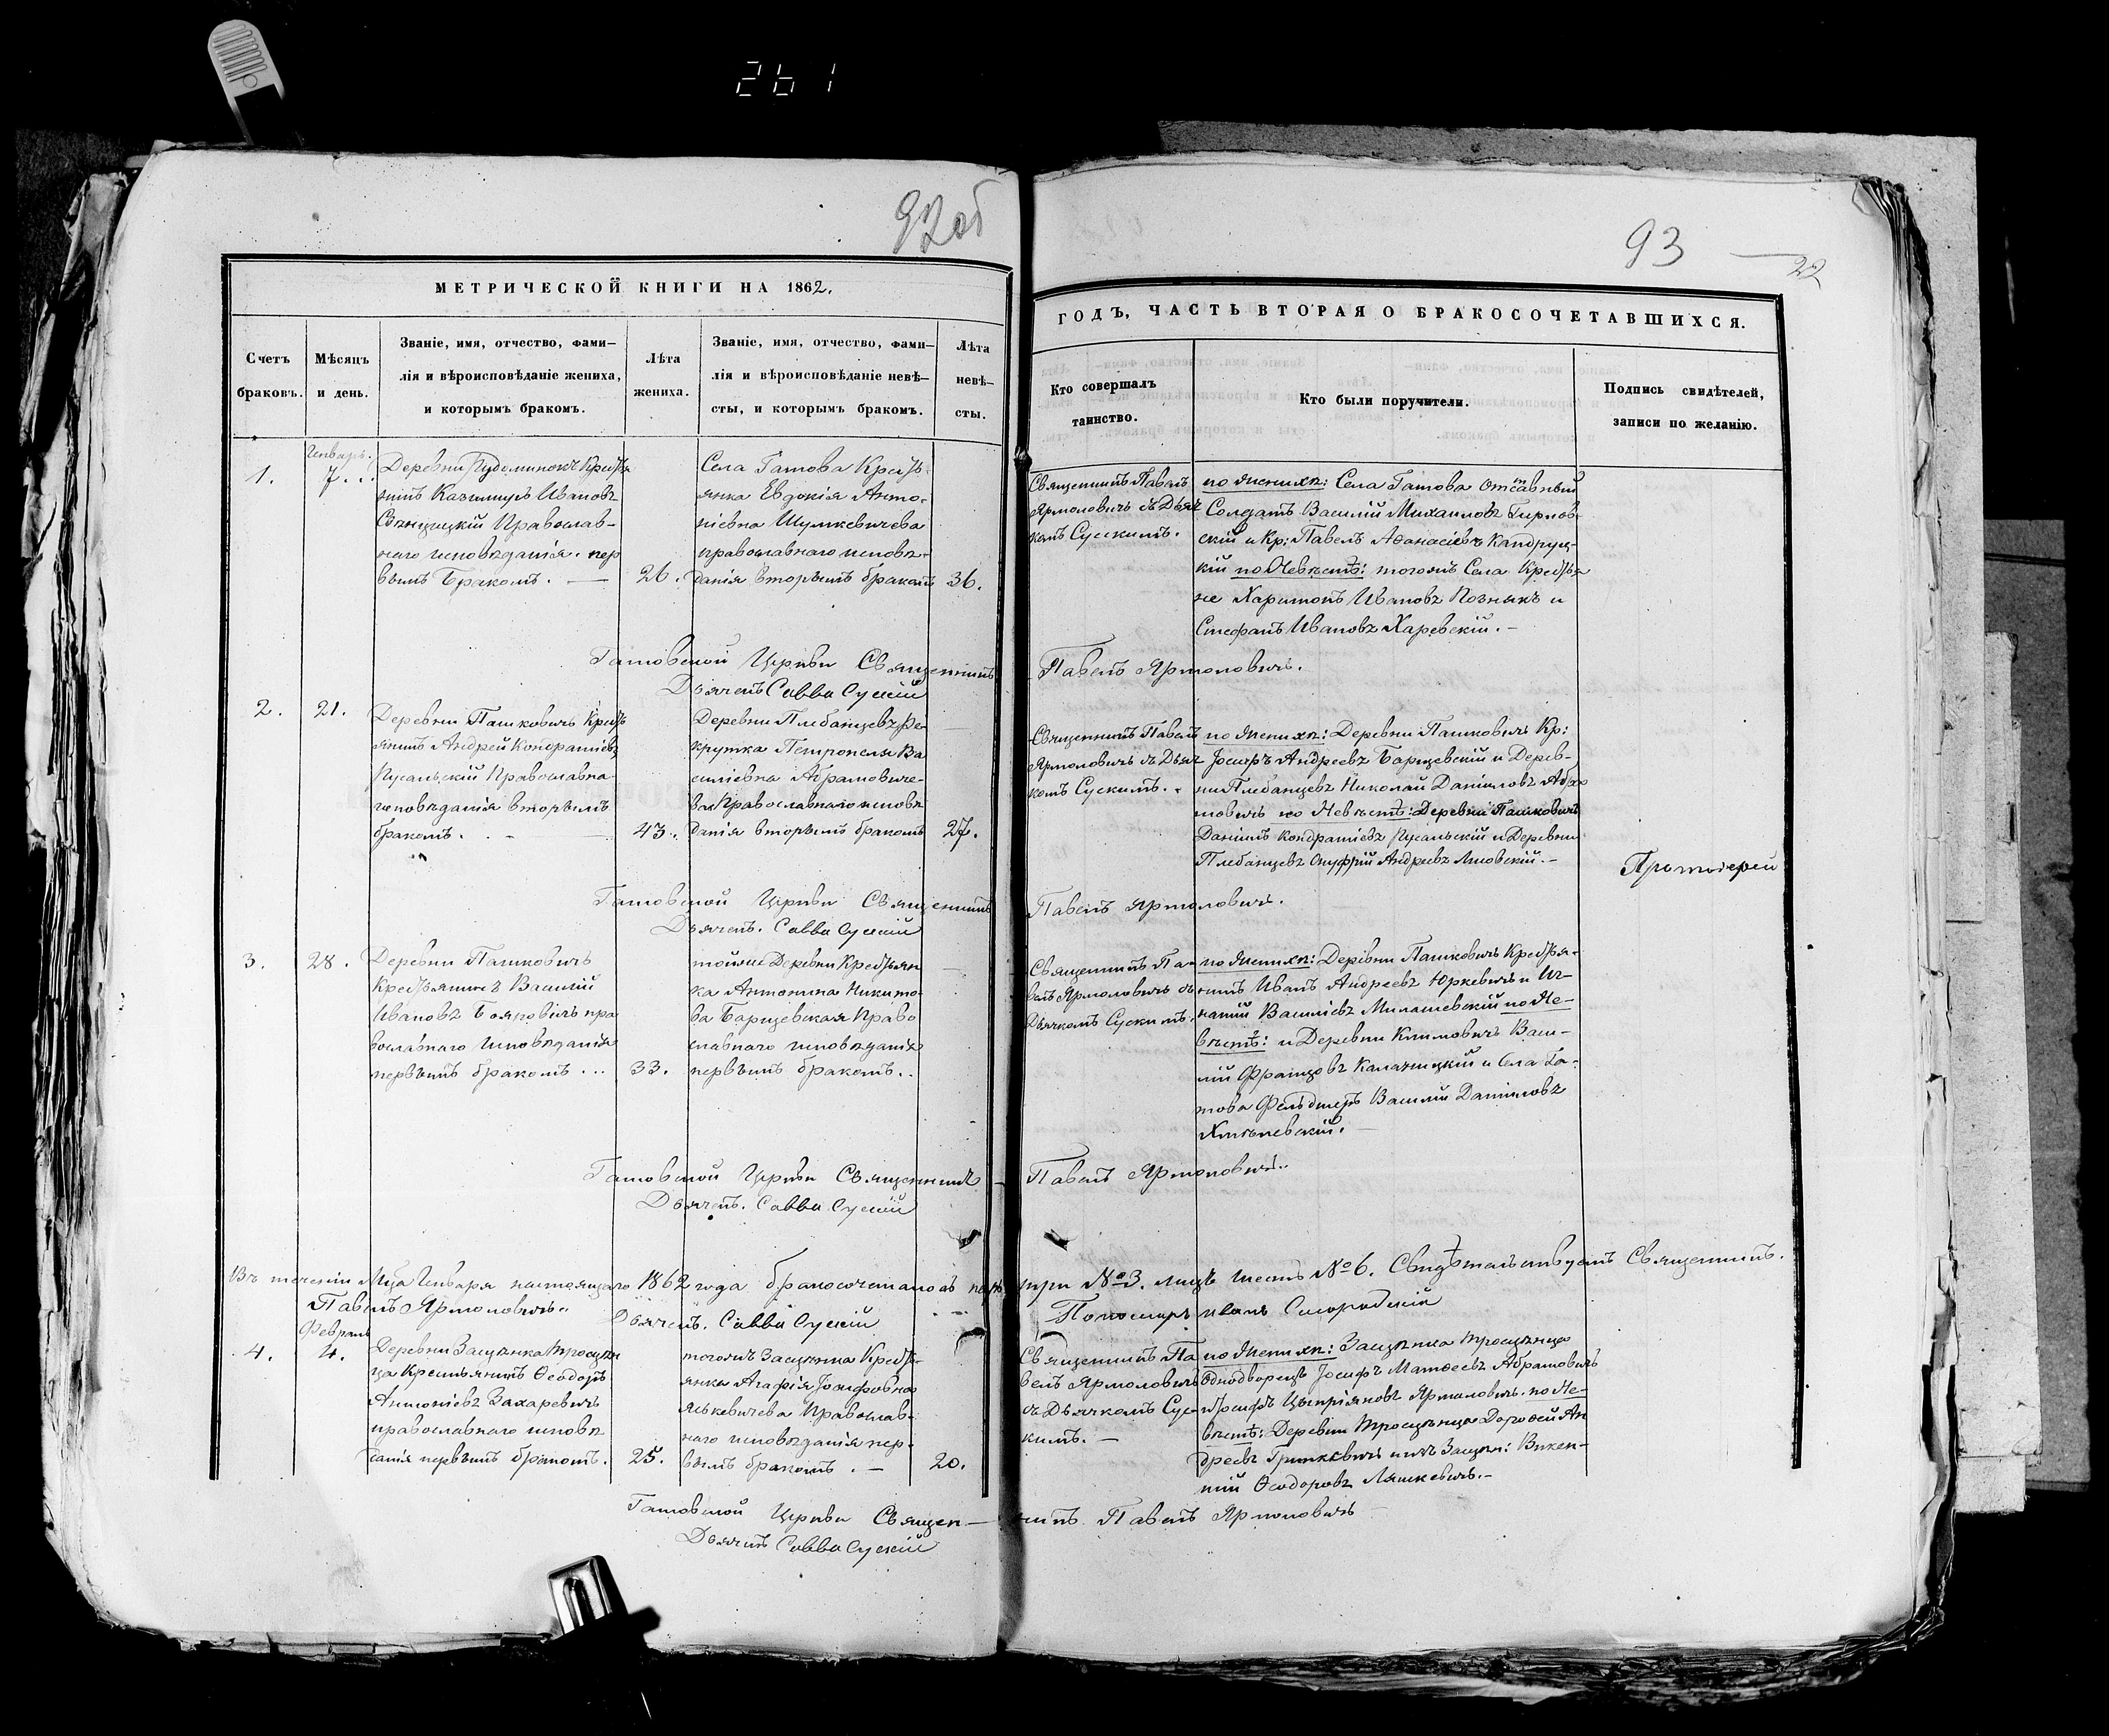 261
92 об
93
22
МЕТРИЧЕСКОЙ КНИГИ НА 1862.
Счетъ
браковъ.
Мѣсяцъ
и день.
Званіе, имя, отчество, фами-
лія и вѣроисповѣданіе жениха,
и которымъ бракомъ.
Лѣта
жениха.
Званіе, имя, отчество, фами-
лія и вѣроисповѣданіе невѣ-
сты, и которымъ бракомъ.
Лѣта
невѣ-
сты.
ГОДЪ, ЧАСТЬ ВТОРАЯ О БРАКОСОЧЕТАВШИХСЯ.
Кто совершалъ
таинство.
Кто были поручители.
Подпись свидѣтелей,
записи по желанію.
1.
Январь.
7.
Деревни
нинъ Казимиръ Ивановъ
Православ-
наго исповѣданія. пер
вымъ Бракомъ.
26.
Села Гатова Кресть-
янка Евдокія Анто-
ніевна Шулкевичева
православнаго исповѣ-
данія вторымъ бракомъ
36.
Священникъ Павелъ
Ярмоловичъ съ Дьяч
комъ Сускимъ.
по Женихѣ: Села Гатова Отставный
Солдатъ Василій Михаиловъ
скій и Кр: Павелъ Аѳанасіевъ
кій по Невѣстѣ: тогожъ Села Крестья
не Харитонъ Ивановъ Познякъ и
Стефанъ Ивановъ Харевскій.
Гатовской Церкви Священникъ Павелъ Ярмоловичъ.
Дьячекъ Савва Сускій
2.
21.
Деревни Пашковичъ Кресть
янинъ Андрей Кондратіевъ
Русальскій Православна
исповѣданія вторымъ
бракомъ.
43.
Деревни Плебанцевъ Ре-
крутка Петронеля Ва
силіевна Абрамовиче-
ва Православнаго исповѣ
данія вторымъ бракомъ
27.
Священникъ Павелъ
Ярмоловичъ съ Дьяч
комъ Сускимъ.
по Женихѣ: Деревни Пашковичъ Кр:
Іосифъ Андреевъ Барщевскій и Дерев-
ни Плебанцевъ Николай Даніиловъ Абра
мовичъ по Невѣстѣ: Деревни Пашковичъ
Даніилъ Кондратіевъ Русальскій и Деревни
Плебанцевъ Онуфрій Андреевъ Лисовскій.
Протоіерей
Гатовской Церкви Священникъ Павелъ Ярмоловичъ.
Дьячекъ. Савва Сускій
3.
28.
Деревни Пашковичъ
Крестьянинъ Василій
Ивановъ пра
вославнаго исповѣданія
первымъ бракомъ
33.
тойже Деревни Крестьян
ка Антонина Никито
ва Барщевская Право
славнаго исповѣданія
первымъ бракомъ.
Священникъ Па-
велъ Ярмоловичъ съ
Дьячкомъ Сускимъ.
по Женихѣ: Деревни Пашковичъ Крестья-
нинъ Иванъ Андреевъ Юркевичъ и Иг-
натій Василіевъ Милашевскій по Не-
вѣстѣ: и Деревни Климовичъ Васи-
лій Францовъ Калачицкій и Села Га-
това Фельдшеръ Василій Даниловъ
Хмѣлевскій.
Гатовской Церкви Священникъ Павелъ Ярмоловичъ.
Дьячекъ. Савва Сускій
Въ теченіи Мца Января настоящаго 1862 года бракосочеталось паръ три №3. лицъ шесть №6. Свидѣтельствуетъ Священникъ.
Павелъ Ярмоловичъ. Дьячекъ. Савва Сускій Пономарь Иванъ
Февраль
4.
4.
Деревни Засценка Тросцен
ца Крестьянинъ Ѳеодоръ
Антоніевъ Захаревичъ
православнаго исповѣ
данія первымъ бракомъ.
25.
тогожъ Засценка Кресть-
янка Агафія Іосифовна
Яськевичева Православ-
наго исповѣданія пер-
вымъ бракомъ.
20.
Священникъ Па
велъ Ярмоловичъ
съ Дьячкомъ Сус-
кимъ.
по Женихѣ: Засценка Тросценца
Однодворецъ Іосифъ Матѳеевъ Абрамовичъ
и Іосифъ Ципріяновъ Ярмоловичъ. по Не-
вѣстѣ: Деревни Тросценца Дороѳей Ан
дреевъ Гринкевичъ и Засцен: Викен-
тій Ѳеодоровъ Ляшкевичъ.
Гатовской Церкви Священникъ Павелъ Ярмоловичъ
Дьячекъ Савва Сускій